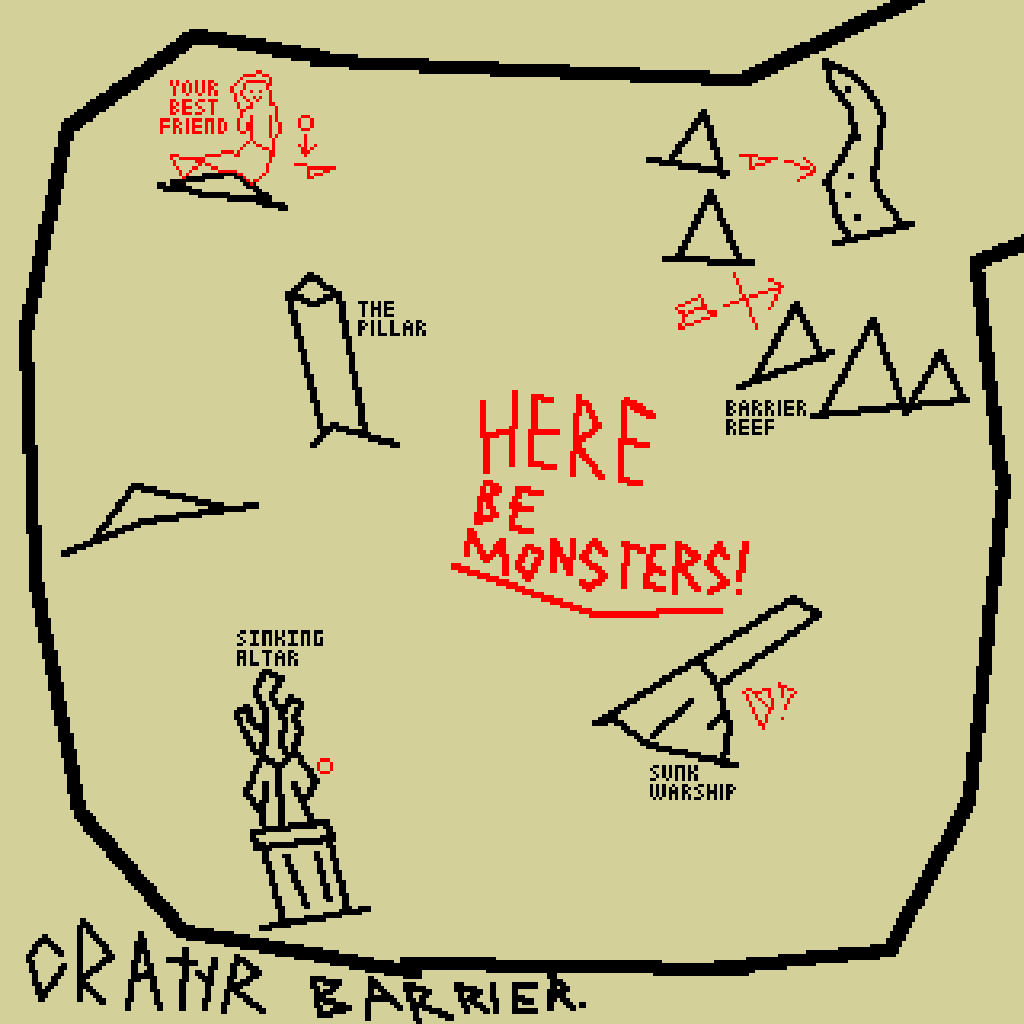 YOUR
BEST
FRIEND
THE
PILLAR
BARRIER
REEF
HERE
BE
MONSTERS!
SINKING
ALTAR
SUNK
WARSHIP
CRATYR BARRIER.